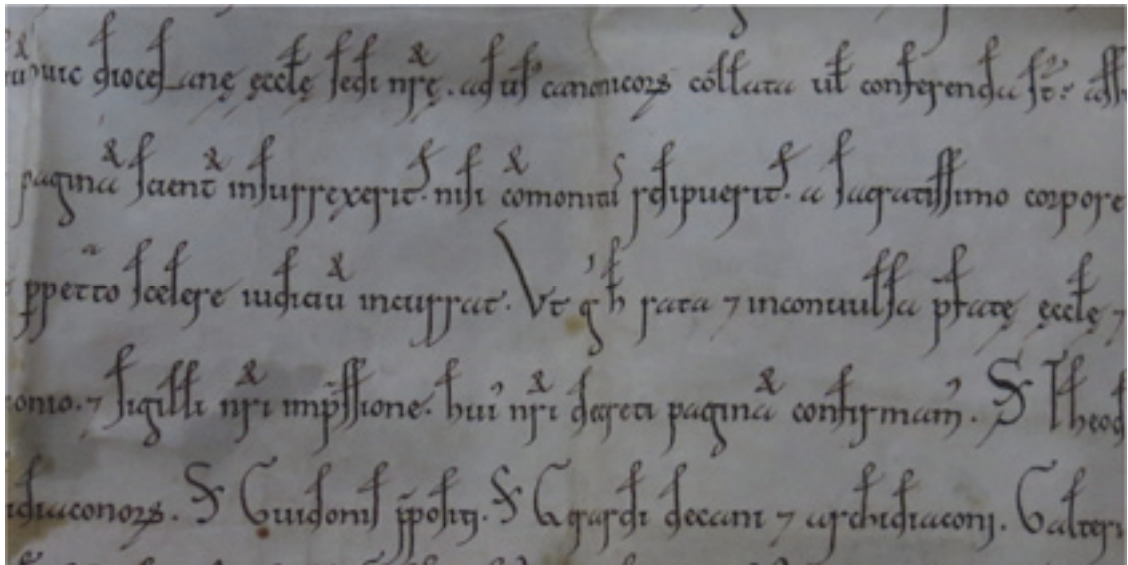 huic diocesane ęcclę sedi nrę. ad us canonicorꝝ collata ul conferenda st:
pagina scient insurrexerit. nisi comoniti resipuerit. a sacratissimo corpore
ppetrato scelere iudiciu incurrat. Ut g h rata ⁊ inconuulsa pfatę ęcclę ⁊
sigilli nri impssione. hui nri decreti pagina confirmam. S Theod
S Guidonis ppositi. S Gerardi decani ⁊ archidiaconi. Galteri